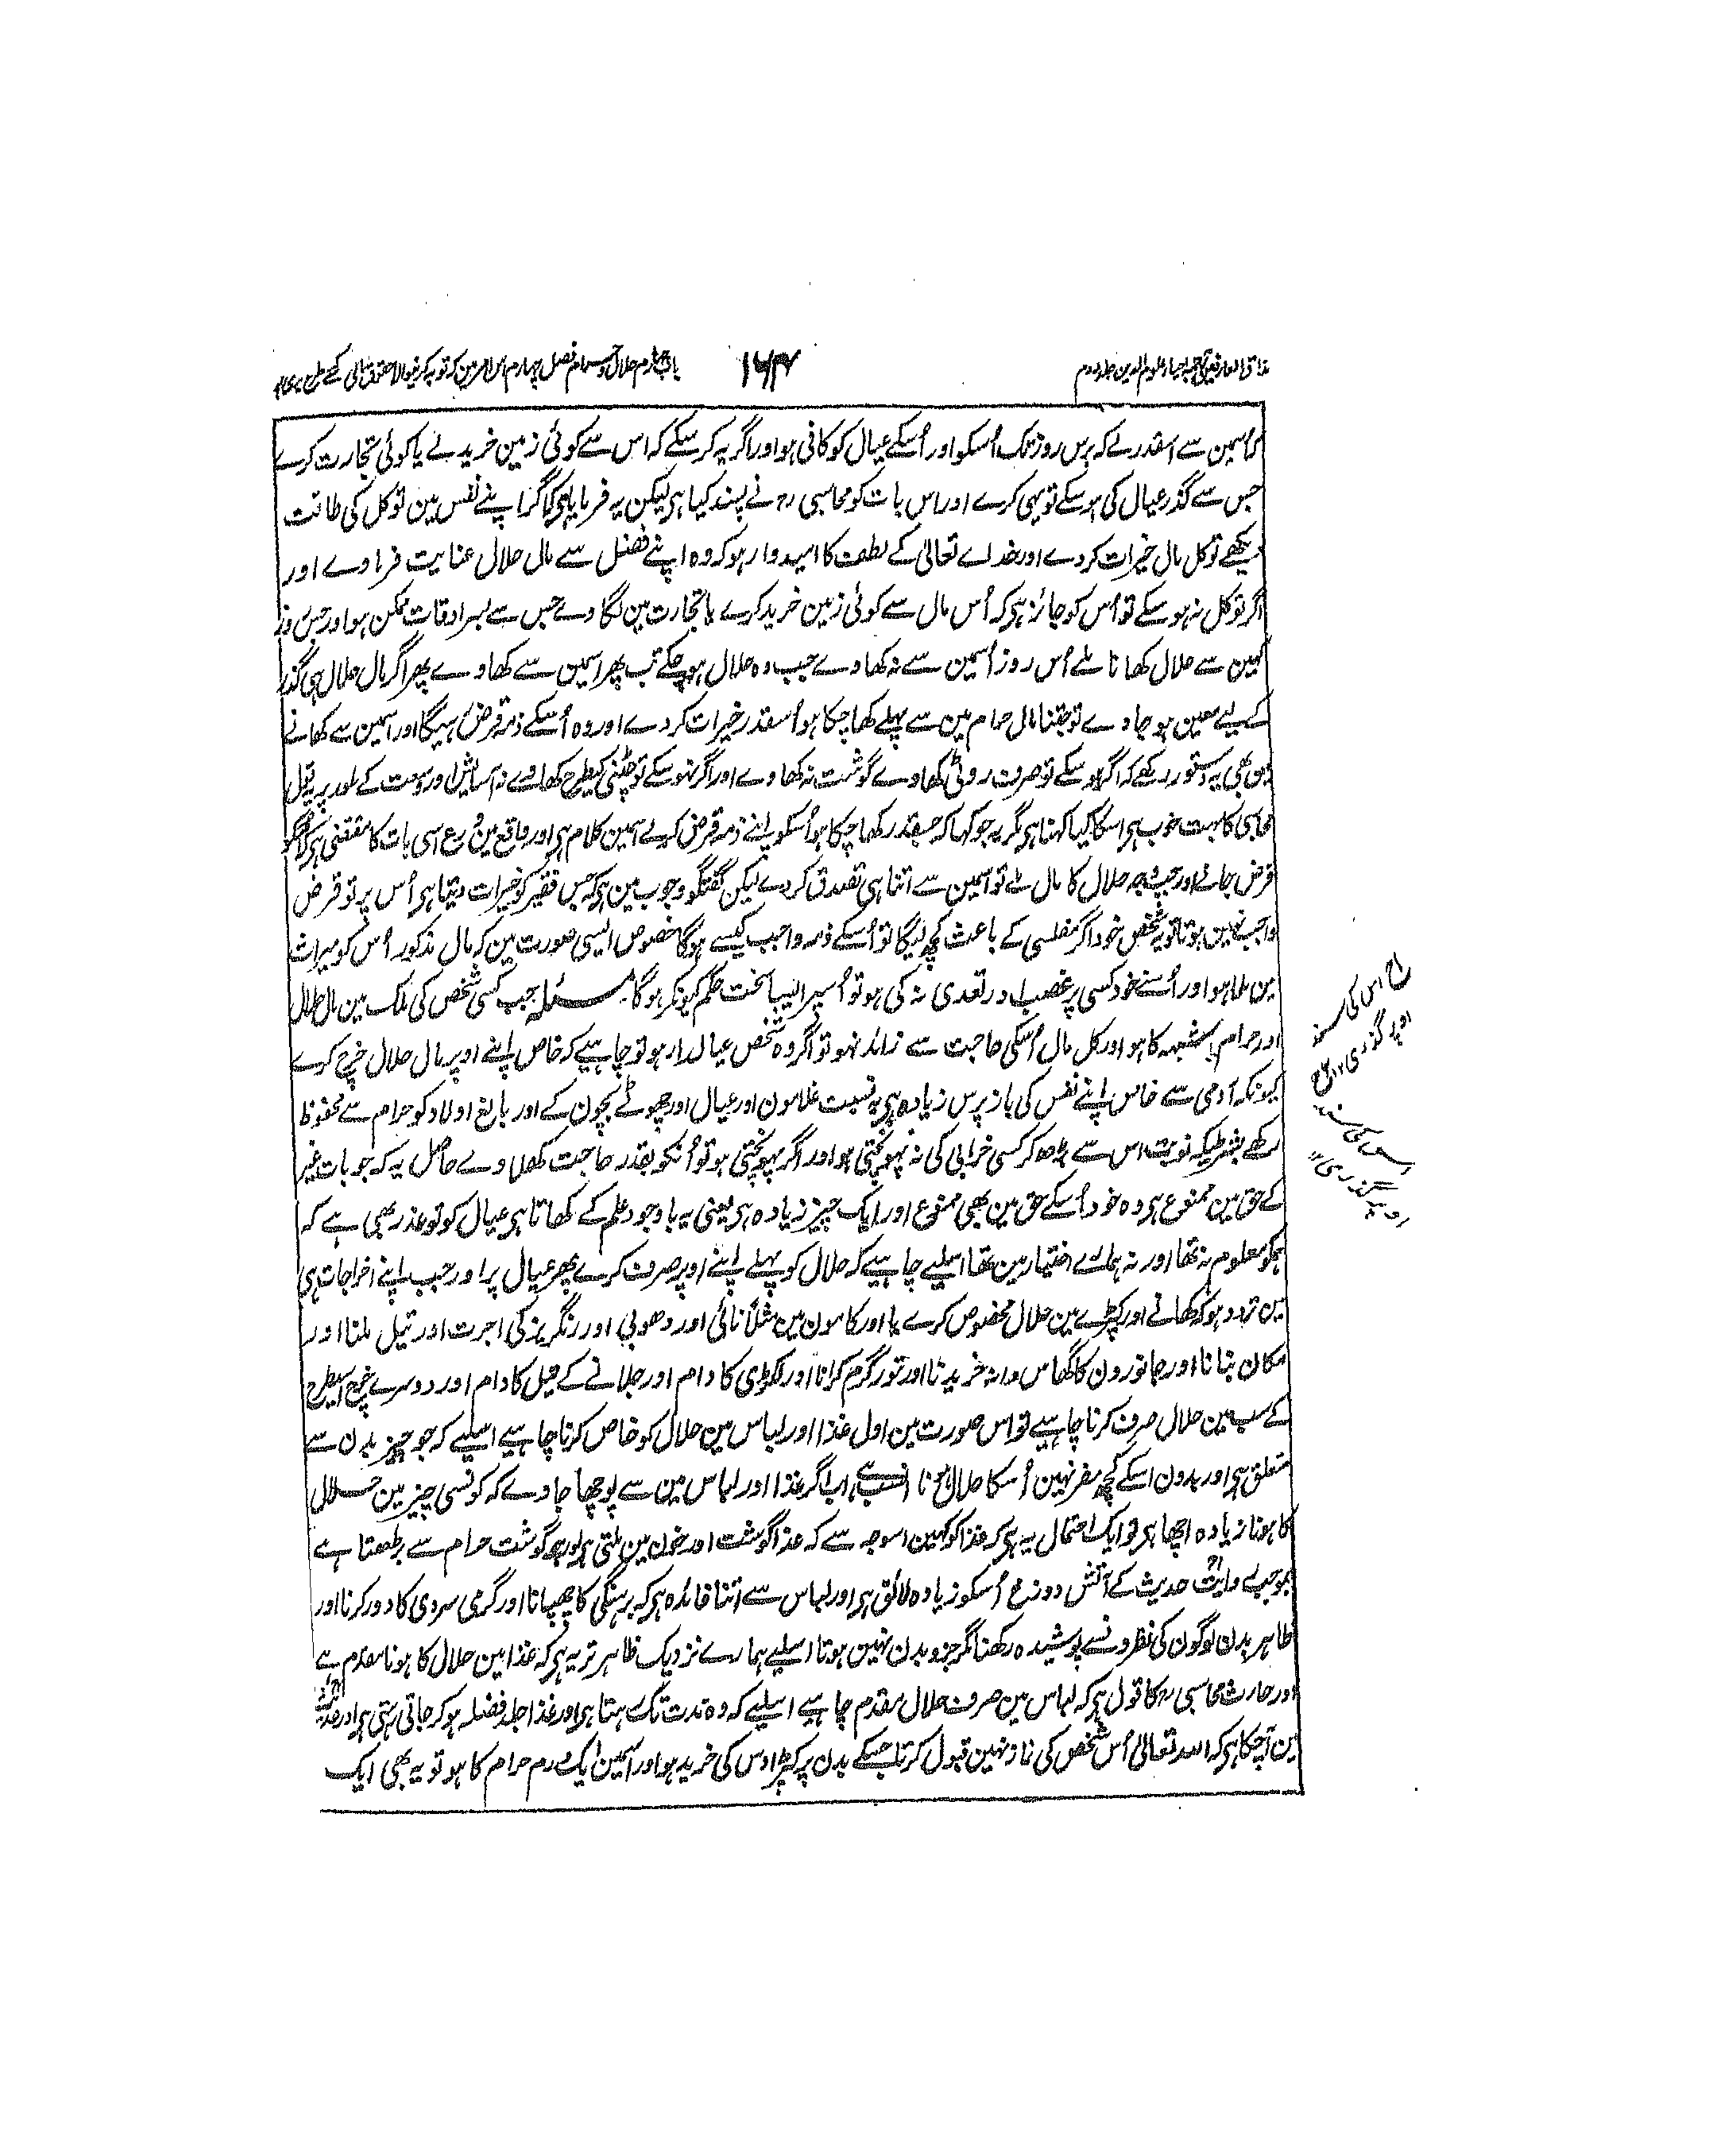 مذاق العارفین ترجمہ احیاء علوم الدین جلد دوم
۱۶۴
باب چہارم حلال و حرام فصل چہارم اس امر مین کہ توبہ کرنیوالا حقوق مالی سے کس طرح بری ہو
کہ اسمین سے اسقدر لے کہ برس روز تک اُسکو اور اُسکے عیال کو کافی ہو اور اگر یہ کر سکے کہ اس سے کوئی زمین خرید لے یا کوئی تجارت کرے
جس سے گذر عیال کی ہو سکے تو یہی کرے اور اس بات کو محاسبی رہ نے پسند کیا ہی لیکن یہ فرمایا ہی کہ اگر اپنے نفس مین توکل کی طاقت
دیکھے تو کل مال خیرات کر دے اور خداے تعالیٰ کے لطف کا امیدوار ہو کہ وہ اپنے فضل سے مال حلال عنایت فرماوے اور
اگر توکل نہ ہو سکے تو اُس کو جائز ہی کہ اُس مال سے کوئی زمین خرید کرے یا تجارت مین لگاوے جس سے بسر اوقات ممکن ہو اور جس روز
کہین سے حلال کھانا ملے اُس روز اُسمین سے نہ کھاوے جب وہ حلال ہو چکے تب پھر اسمین سے کھاوے پھر اگر مال حلال ہی گذر
کے لیے معین ہو جاوے تو جتنا مال حرام مین سے پہلے کھا چکا ہو اُسقدر خیرات کر دے اور وہ اُسکے ذمہ قرض رہیگا اور اسمین سے کھانے
مین بھی یہ دستور رکھے کہ اگر ہو سکے تو صرف روٹی کھاوے گوشت نہ کھاوے اور اگر نہو سکے تو چٹنی کیطرح کھاوے نہ آسایش اور وسعت کے طور پر یہ قول
محاسبی کا بہت خوب ہی اسکا کیا کہنا ہی مگر یہ جو کہا کہ جسقدر کھا چکا ہو اُسکو اپنے ذمہ قرض کر لے اسمین کلام ہی اور واقع مین ورع اسی بات کا مقتضی ہی کہ اُسکو
قرض جانے اور جب وجہ حلال کا مال ملے تو اسمین سے اتنا ہی تصدق کر دے لیکن گفتگو وجوب مین ہی کہ جس فقیر کو خیرات دیتا ہی اُس پر تو قرض
واجب نہین ہوتا تو یہ شخص خود اگر مفلسی کے باعث کچھ لیگا تو اُسکے ذمہ واجب کیسے ہوگا خصوص ایسی صورت مین کہ مال مذکور اُس کو میراث
مین ملا ہو اور اُسنے خود کسی پر غصب اور تعدی نہ کی ہو تو اُسپر ایسا سخت حکم کیونکر ہوگا۔ مسئلہ جب کسی شخص کی ملک مین مال حلال
اور حرام یا شبہہ کا ہو اور کل مال اُسکی حاجت سے زائد نہو تو اگر وہ شخص عیالدار ہو تو چاہیے کہ خاص اپنے اوپر مال حلال خرچ کرے
کیونکہ آدمی سے خاص اپنے نفس کی باز پرس زیادہ ہی بہ نسبت غلامون اور عیال اور چھوٹے بچون کے اور بالغ اولاد کو حرام سے محفوظ
رکھے بشرطیکہ نوبت اس سے بڑھ کر کسی خرابی کی نہ پہونچتی ہو اور اگر پہونچتی ہو تو اُنکو بقدر حاجت کھلاوے حاصل یہ کہ جو بات غیر
کے حق مین ممنوع ہی وہ خود اُسکے حق مین بھی ممنوع اور ایک چیز زیادہ ہی یعنی یہ باوجود علم کے کھاتا ہی عیال کو تو عذر بھی ہے کہ
ہمکو معلوم نہ تھا اور نہ ہمارے اختیار مین تھا اسلیے چاہیے کہ حلال کو پہلے اپنے اوپر صرف کرے پھر عیال پر اور جب اپنے اخراجات ہی
مین تردد ہو کہ کھانے اور کپڑے مین حلال مخصوص کرے یا اور کامون مین مثلاً نائی اور دھوبی اور رنگریز کی اجرت اور تیل ملنا اور
مکان بنانا اور جانورون کا گھاس دانہ خریدنا اور تنور گرم کرانا اور لکڑی کا دام اور جلانے کے تیل کا دام اور دوسرے خرچ اسیطرح
کے سب مین حلال صرف کرنا چاہیے تو اس صورت مین اول غذا اور لباس مین حلال کو خاص کرنا چاہیے اسلیے کہ جو چیز بدن سے
متعلق ہی اور بدون اسکے کچھ مفر نہین اُسکا حلال ہونا انسب ہی اب اگر غذا اور لباس مین سے پوچھا جاوے کہ کونسی چیز مین حلال
کا ہونا زیادہ اچھا ہی تو ایک احتمال یہ ہی کہ غذا کو کہین اسوجہ سے کہ غذا گوشت اور خون مین ملتی ہی اور جو گوشت حرام سے بڑھتا ہے
بموجب روایت حدیث کے آتش دوزخ اُسکو زیادہ لائق ہی اور لباس سے اتنا فائدہ ہی کہ برہنگی کا چھپانا اور گرمی سردی کا دور کرنا اور
ظاہر بدن لوگون کی نظرونسے پوشیدہ رکھنا مگر جزو بدن نہین ہوتا اسلیے ہمارے نزدیک ظاہر تر یہ ہی کہ غذا مین حلال کا ہونا مقدم ہے
اور حارث محاسبی رہ کا قول ہی کہ لباس مین صرف حلال مقدم چاہیے اسلیے کہ وہ مدت تک رہتا ہی اور غذا جلد فضلہ ہو کر جاتی رہتی ہی اور حدیث
مین آچکا ہی کہ اللہ تعالیٰ اُس شخص کی نماز نہین قبول کرتا جسکے بدن پر کپڑا دس کی خرید ہو اور اسمین ایک درم حرام کا ہو تو یہ بھی ایک
اس کی سند
اوپر گذری ۱۲
اس کی سند
اوپر گذری ۱۲